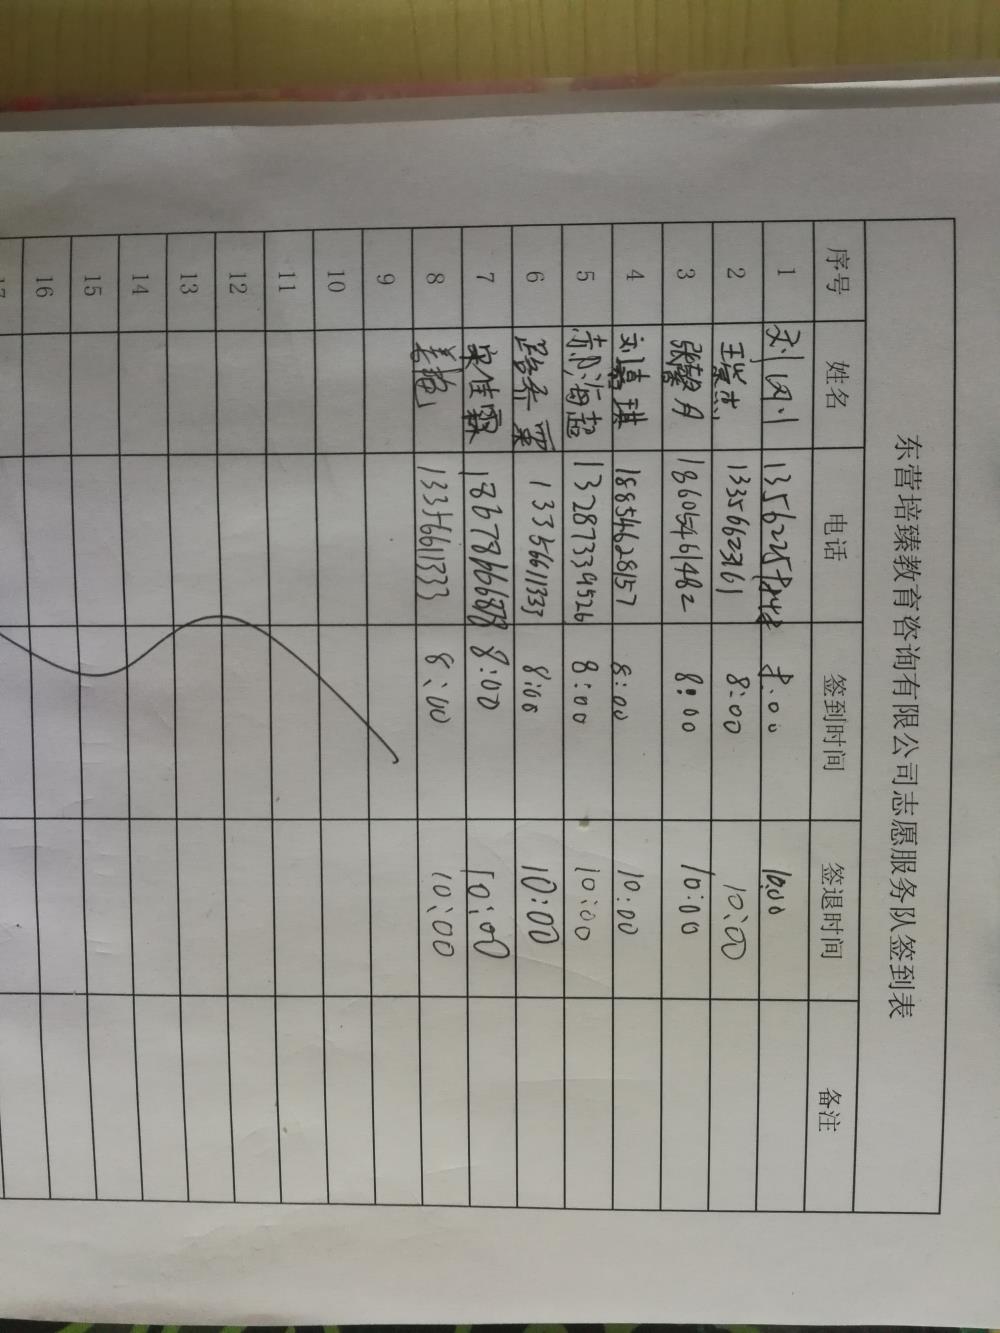 东营培臻教育咨询有限公司志愿服务队签到表
序号 姓名 电话 签到时间 签退时间 备注
1 10:00
2 13356623161 8:00 10:00
3 张馨月 18605461482 8:00 10:00
4 刘嘉琪 18854628157 8:00 10:00
5 海超 13287339526 8:00 10:00
6 13356611333 8:00 10:00
7 宋佳霖 8:00 10:00
8 姜艳 13356611333 8:00 10:00
9
10
11
12
13
14
15
16
17